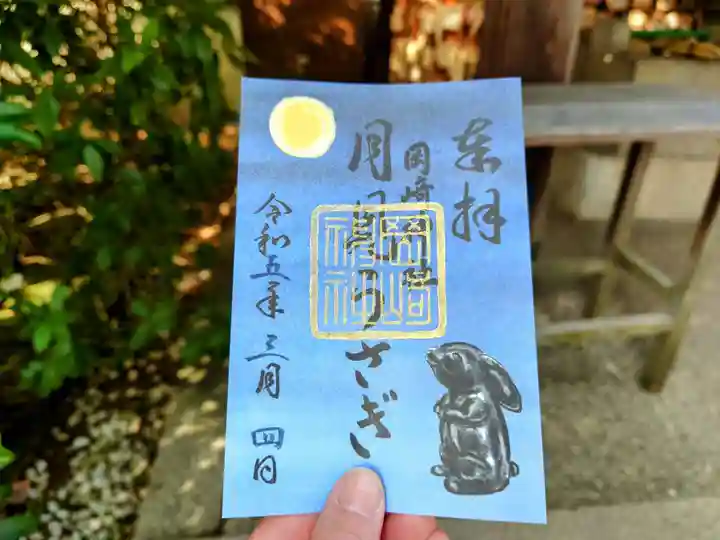 奉拝
岡崎神社
月見うさぎ
岡崎神社
令和五年三月四日